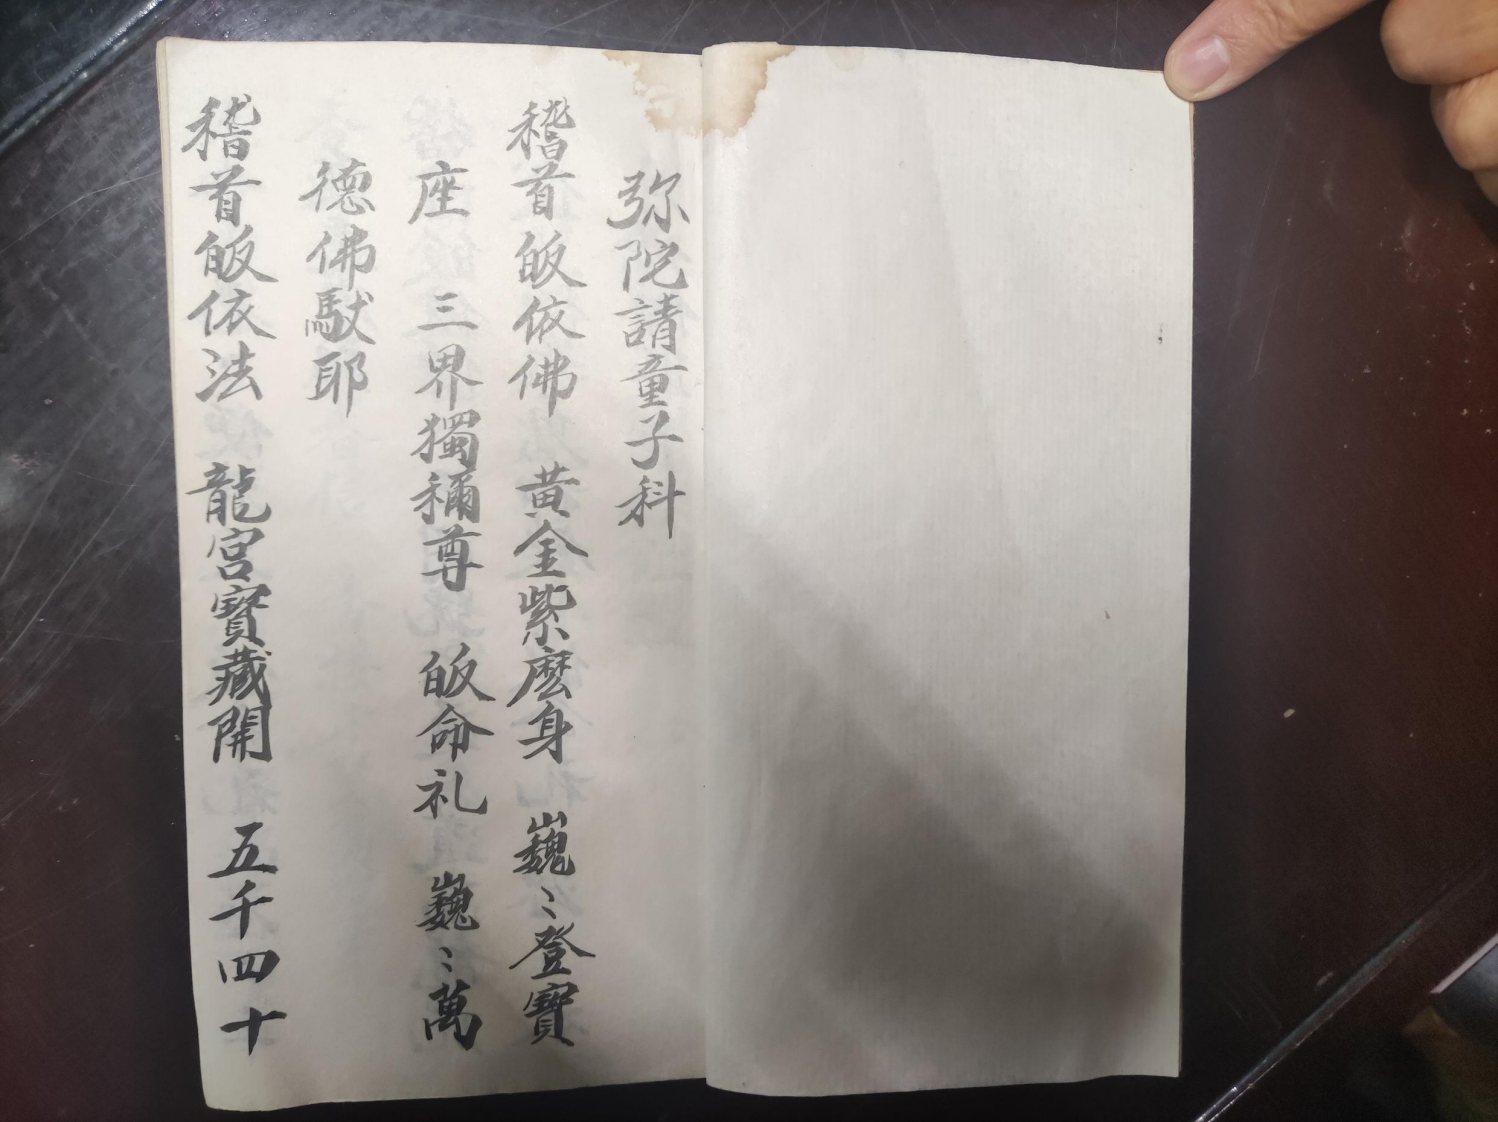 弥院請童子科
稽首皈依佛 黄金紫麽身 巍〻登寶
座 三界獨稱尊 皈命礼 巍〻萬
德佛馱耶
稽首皈依法 龍宮寶藏開 五千四十